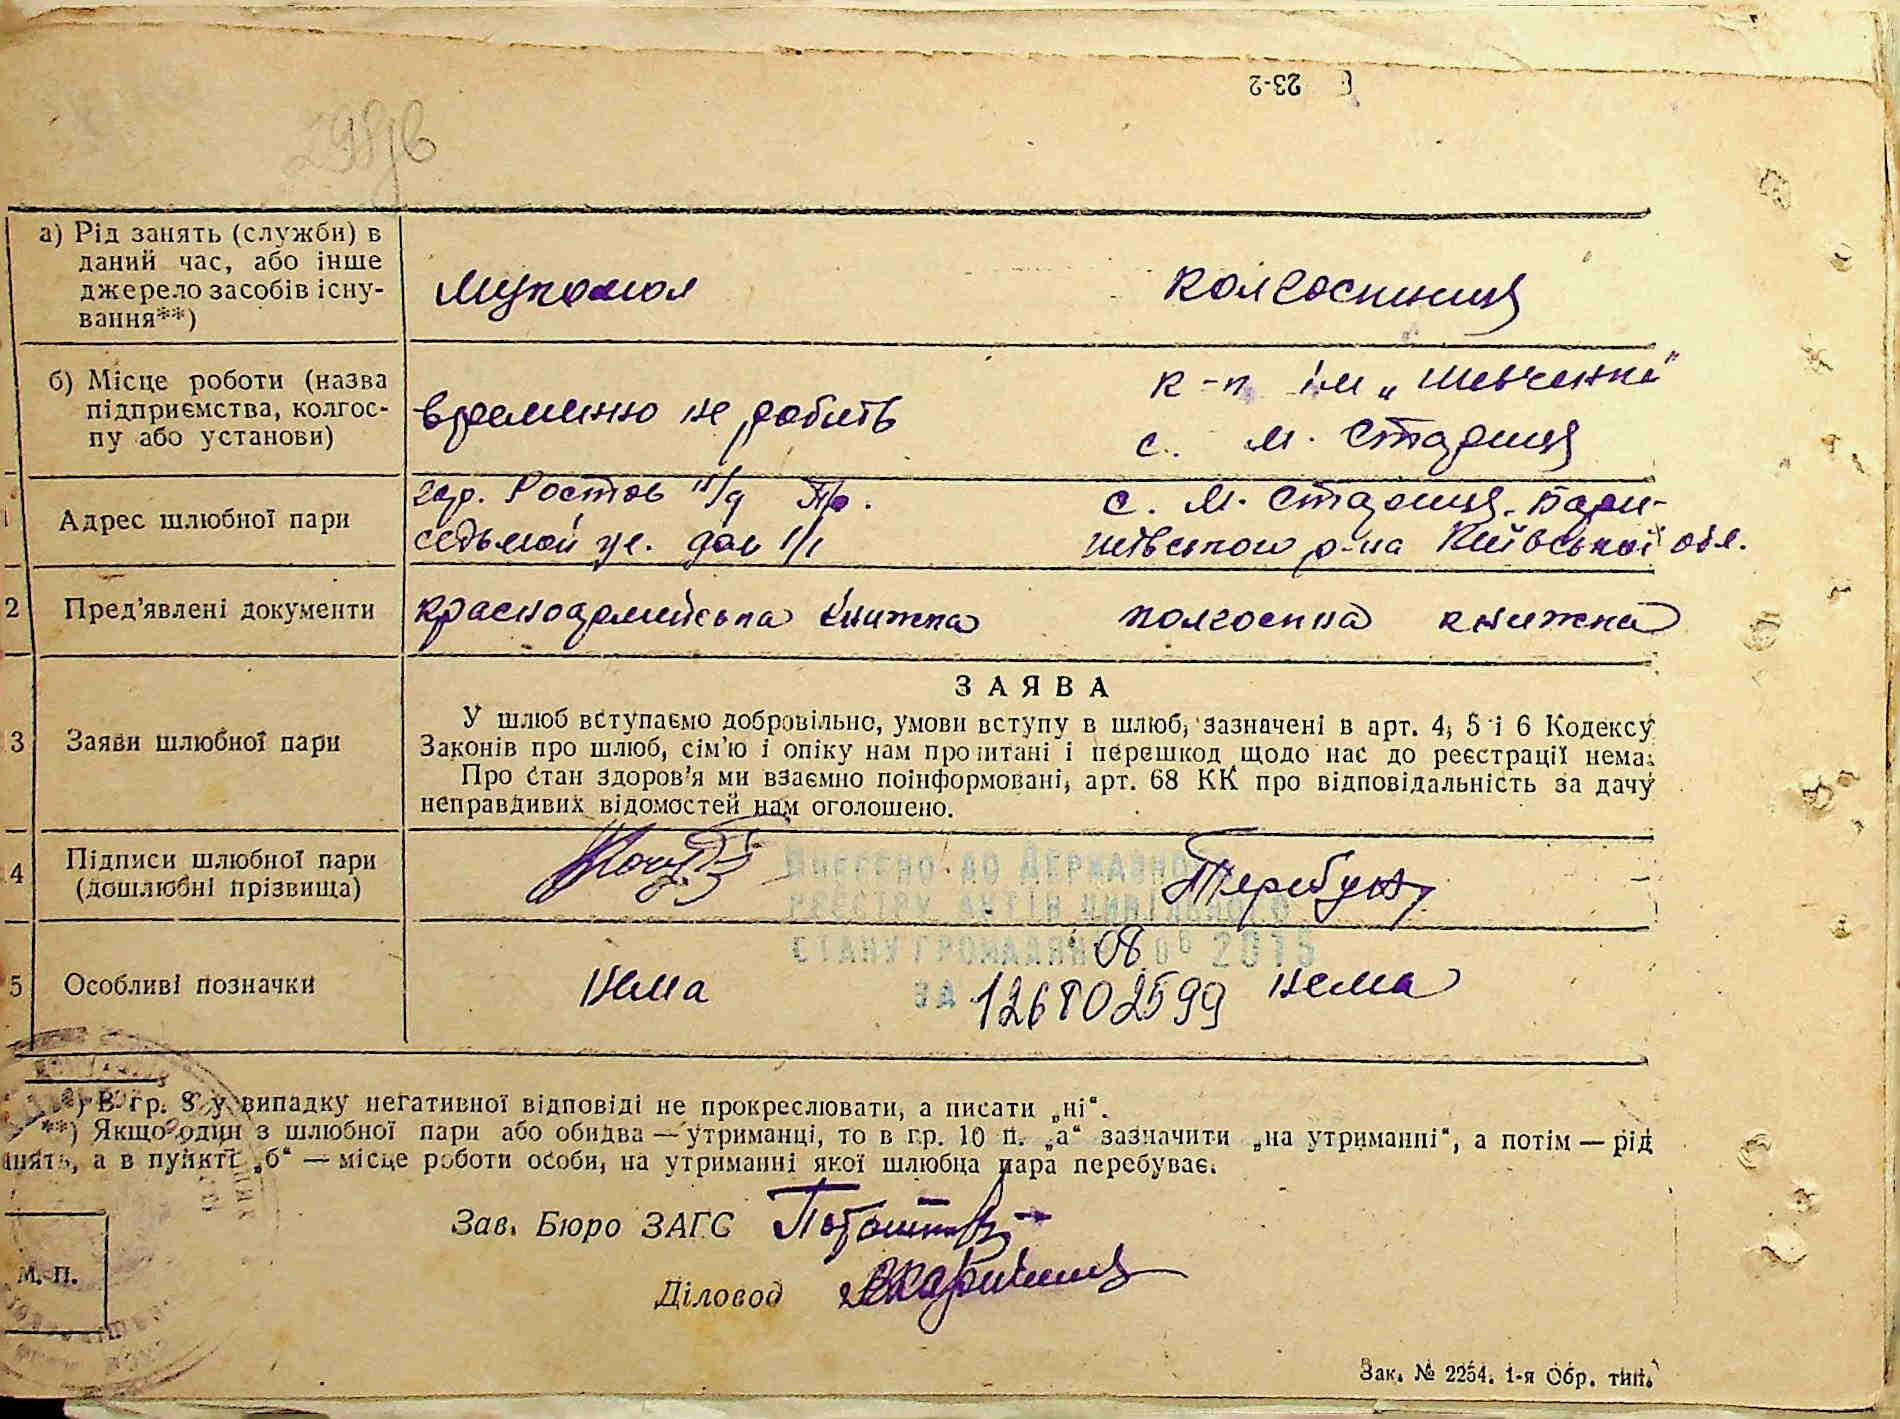 23-2
а) Рід занять (служби) в
даний час, або інше
джерело засобів існу-
вання**)
мукомол
колгоспниця
б) Місце роботи (назва
підприємства, колгос-
пу або установи)
временно не робить
к-п ім „Шевченка"
с. М. Стариця
Адрес шлюбної пари
гор. Ростов н/д
седьмой ул. дом 1/1
с. М. Стариця, Бари-
шівського р-на Київської обл.
2 Пред'явлені документи
красноармейська книжка
колгоспна книжка
3 Заяви шлюбної пари
ЗАЯВА
У шлюб вступаємо добровільно, умови вступу в шлюб, зазначені в арт. 4, 5 і 6 Кодексу
Законів про шлюб, сім'ю і опіку нам прочитані і перешкод щодо нас до реєстрації нема.
Про стан здоров'я ми взаємно поінформовані, арт. 68 КК про відповідальність за дачу
неправдивих відомостей нам оголошено.
4 Підписи шлюбної пари
(дошлюбні прізвища)
Внесено до Державного
реєстру актів цивільного
стану громадян 08 06 2015
за 126802599
5 Особливі позначки
нема
нема
*) В гр. 8 у випадку негативної відповіді не прокреслювати, а писати „ні“.
**) Якщо один з шлюбної пари або обидва — утриманці, то в гр. 10 п. „а“ зазначити „на утриманні“, а потім — рід
занять, а в пункті „б“ — місце роботи особи, на утриманні якої шлюбна пара перебуває.
Зав. Бюро ЗАГС
Діловод
М. П.
Зак. № 2254. 1-я Обр. тип.